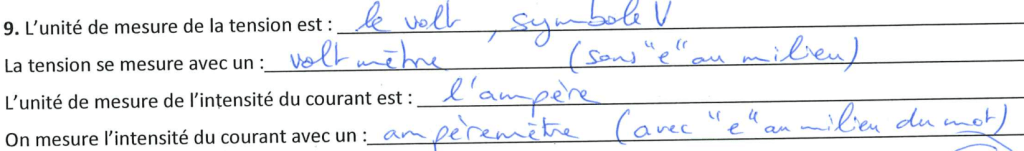 9. L'unité de mesure de la tension est : le volt, symbole V
La tension se mesure avec un : voltmètre (sans "e" au milieu)
L'unité de mesure de l'intensité du courant est : l'ampère
On mesure l'intensité du courant avec un : ampèremètre (avec "e" au milieu du mot)